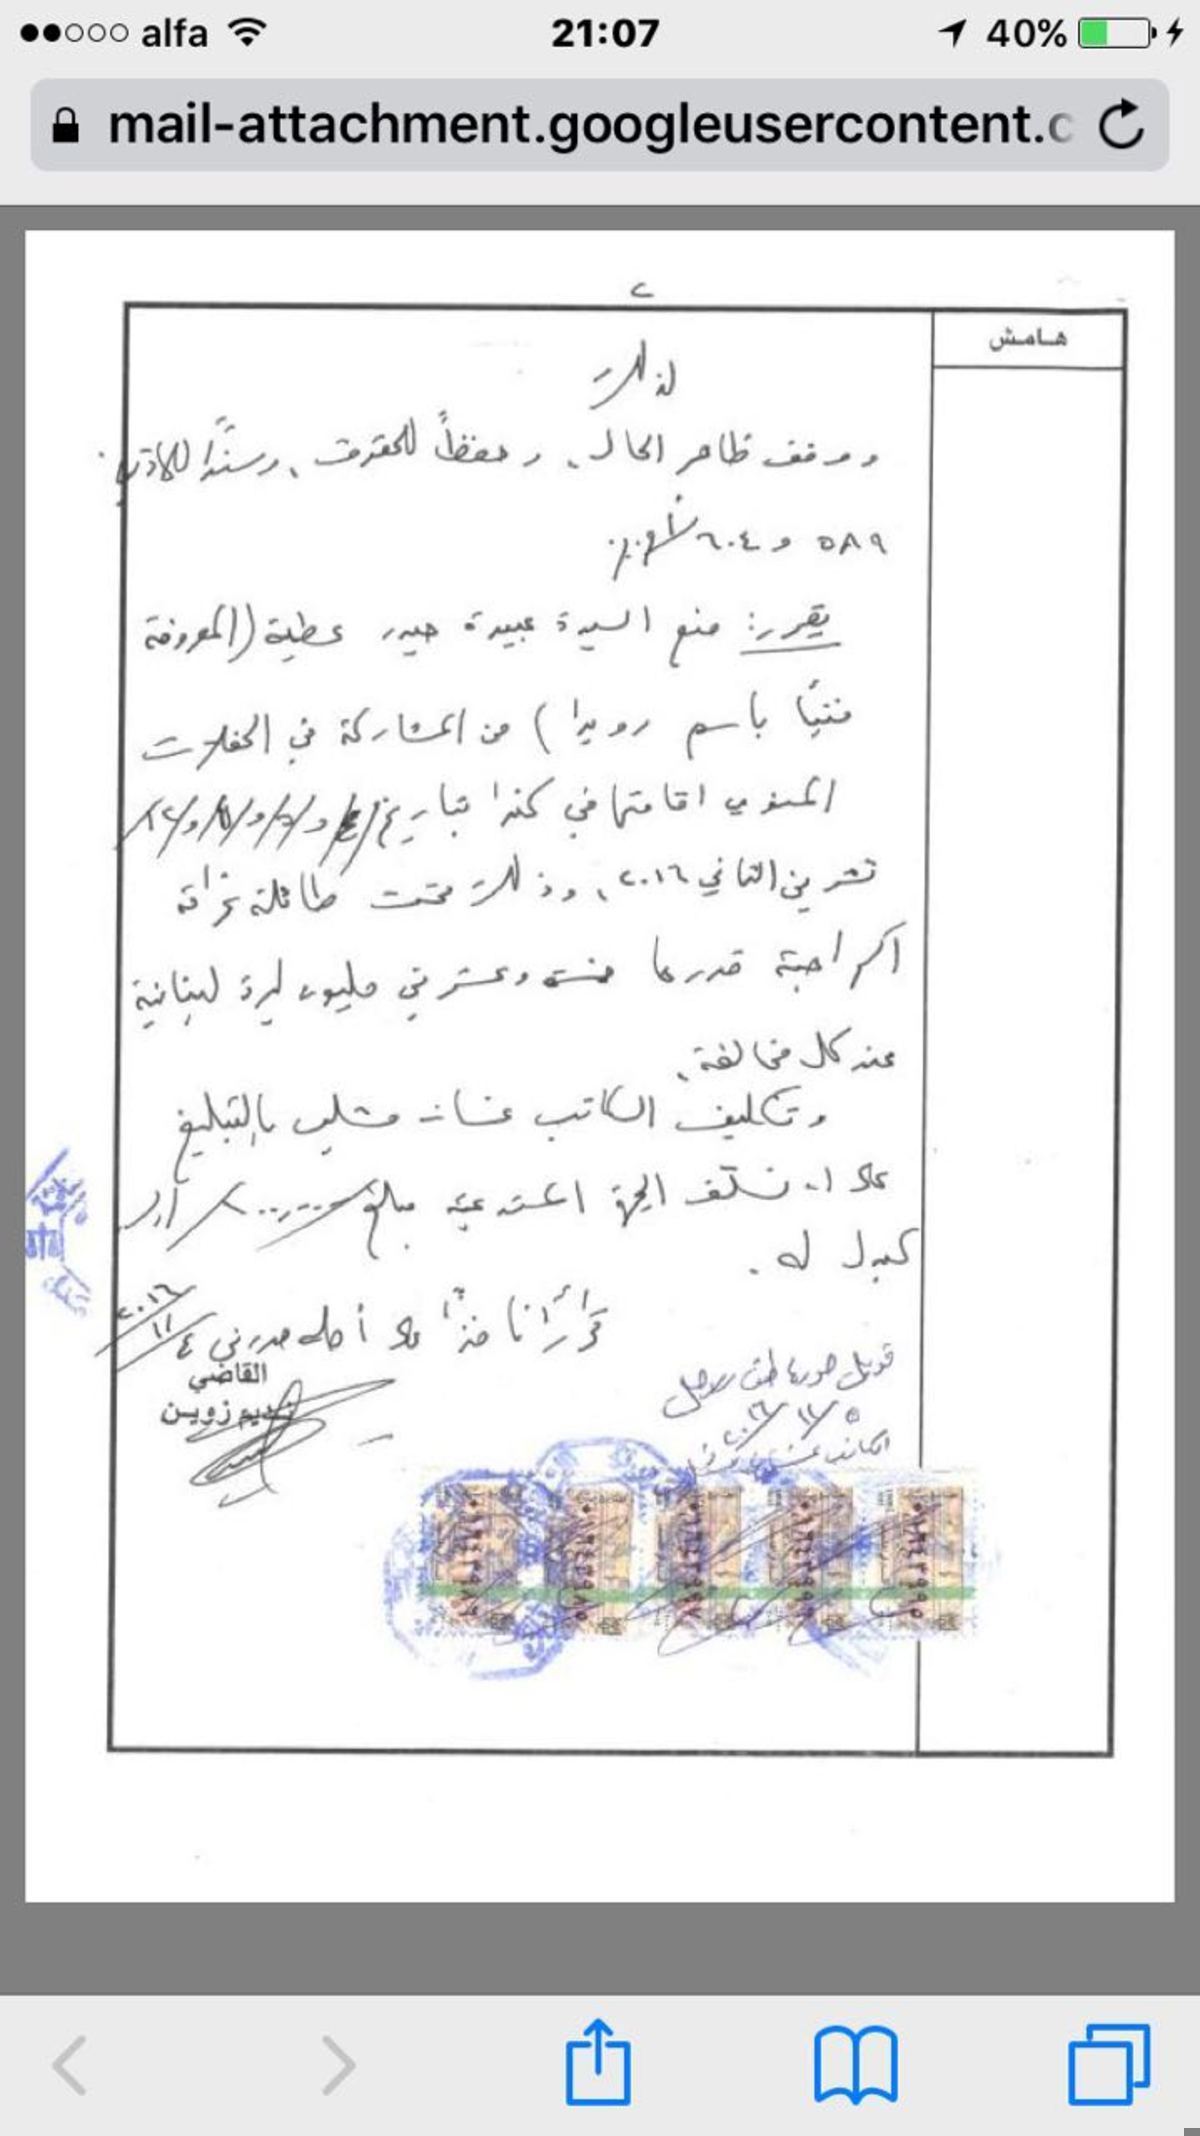 alfa 21:07 40%
mail-attachment.googleusercontent.c
٢
هامش
لذلك
ووفق ظاهر الحال، وحفظاً للحقوق، وسنداً للمادتين
٥٨٩ و ٦٠٤ أ.م.م.
يقرر: منع السيدة عبيدة حيدر عطية (المعروفة
فنياً باسم رويدا) من المشاركة في الحفلات
المنوي اقامتها في كندا بتاريخ
تشرين الثاني ٢٠١٦، وذلك تحت طائلة غرامة
اكراهية قدرها خمسة وعشرين مليون ليرة لبنانية
عند كل مخالفة.
وتكليف الكاتب غسان بالتبليغ
على ان تسلف الجهة المستدعية مبلغ
كبدل له.
قراراً نافذاً على أصله صدر في ٤/١١/٢٠١٦
القاضي
نديم زوين
طبق الاصل
٥/١١/٢٠١٦
الكاتب